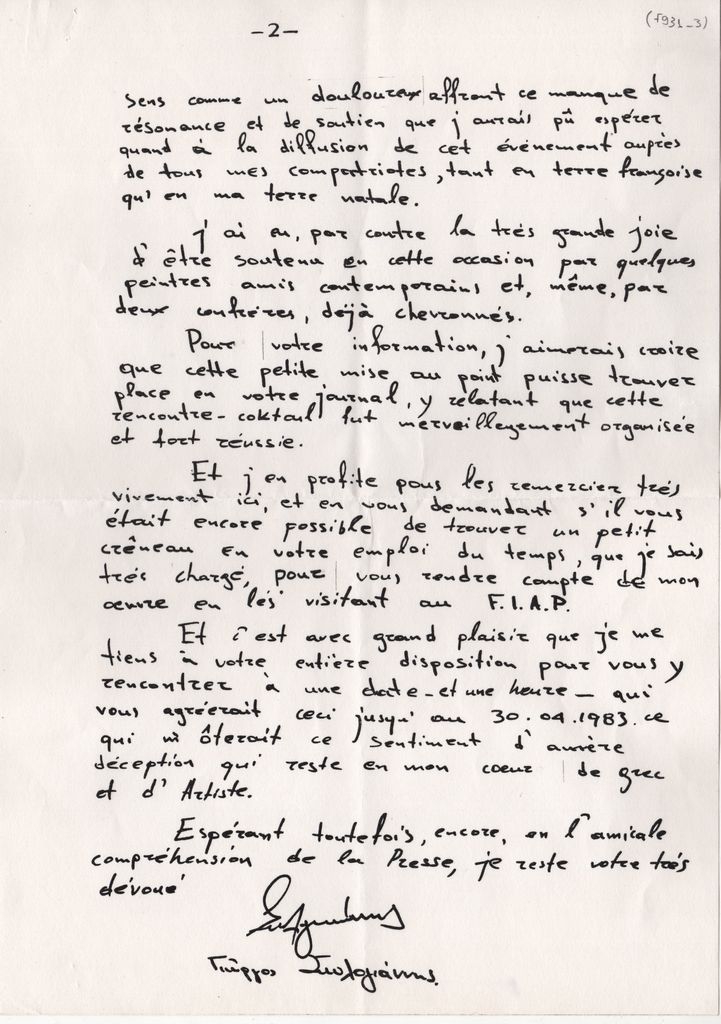 -2-
(f931_3)
sens comme un douloureux affront ce manque de
résonance et de soutien que j'aurais pû espérer
quand à la diffusion de cet événement auprès
de tous mes compatriotes, tant en terre françoise
qu'en ma terre natale.
j'ai eu, par contre la trés grande joie
d'être soutenu en cette occasion par quelques
peintres amis contemporains et, même, par
deux confrères, déjà chevronnés.
Pour votre information, j'aimerais croire
que cette petite mise au point puisse trouver
place en votre journal, y relatant que cette
rencontre-coktail fut merveilleusement organisée
et fort réussie.
Et j'en profite pous les remercier trés
vivement ici, et en vous demandant s'il vous
était encore possible de trouver un petit
crêneau en votre emploi du temps, que je sais
trés chargé, pour vous rendre compte de mon
œuvre en les visitant au F.I.A.P.
Et c'est avec grand plaisir que je me
tiens à votre entière disposition pour vous y
rencontrer à une date-et une heure- qui
vous agréerait ceci jusqu'au 30.04.1983. ce
qui m'ôterait ce sentiment d'amère
déception qui reste en mon coeur de grec
et d'Artiste.
Espérant toutefois, encore, en l'amicale
compréhension de la Presse, je reste votre trés
dévoué
Γιώργος Σκολογιάννης